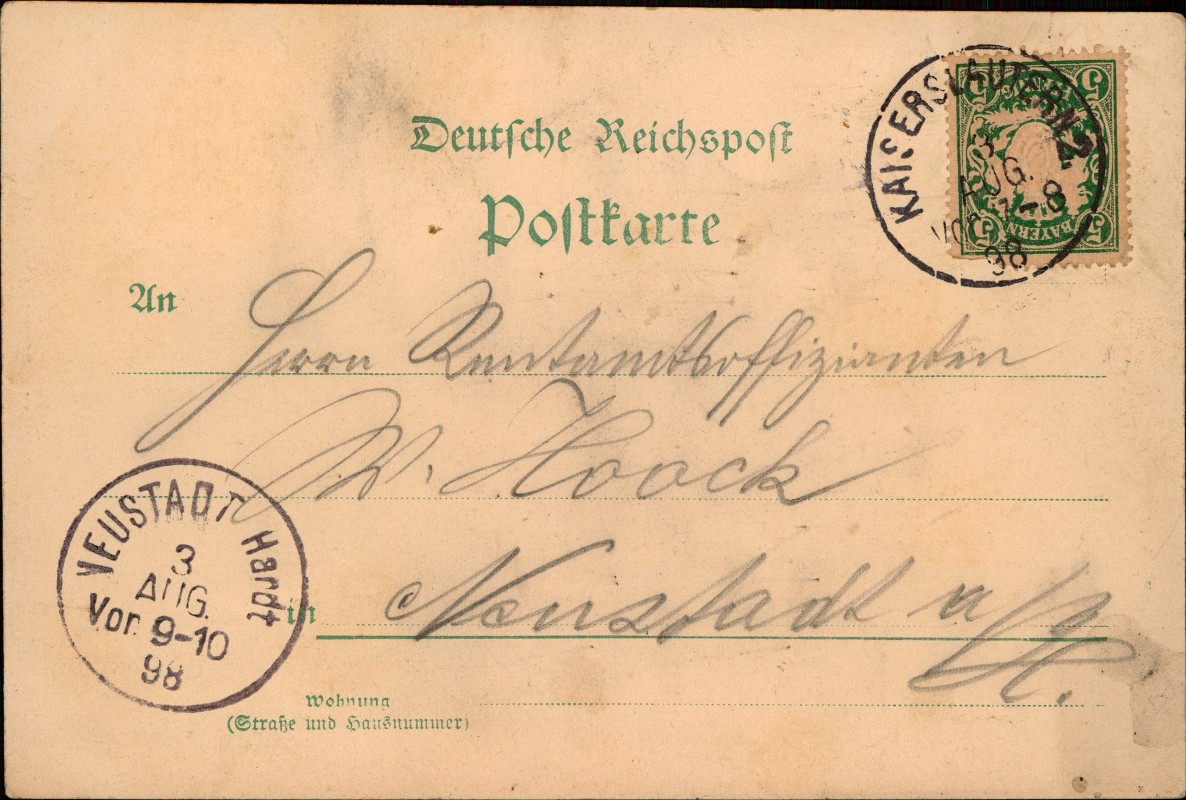 Deutsche Reichspost
Postkarte
KAISERSLAUTERN 2
3
AUG.
VOR 7-8
98
5 5
5 5
BAYERN
An
Herrn Rentamtsoffizianten
W. Hoock
NEUSTADT Hardt
3
AUG.
Vor. 9-10
98
in
Neustadt a/H.
Wohnung
(Straße und Hausnummer)